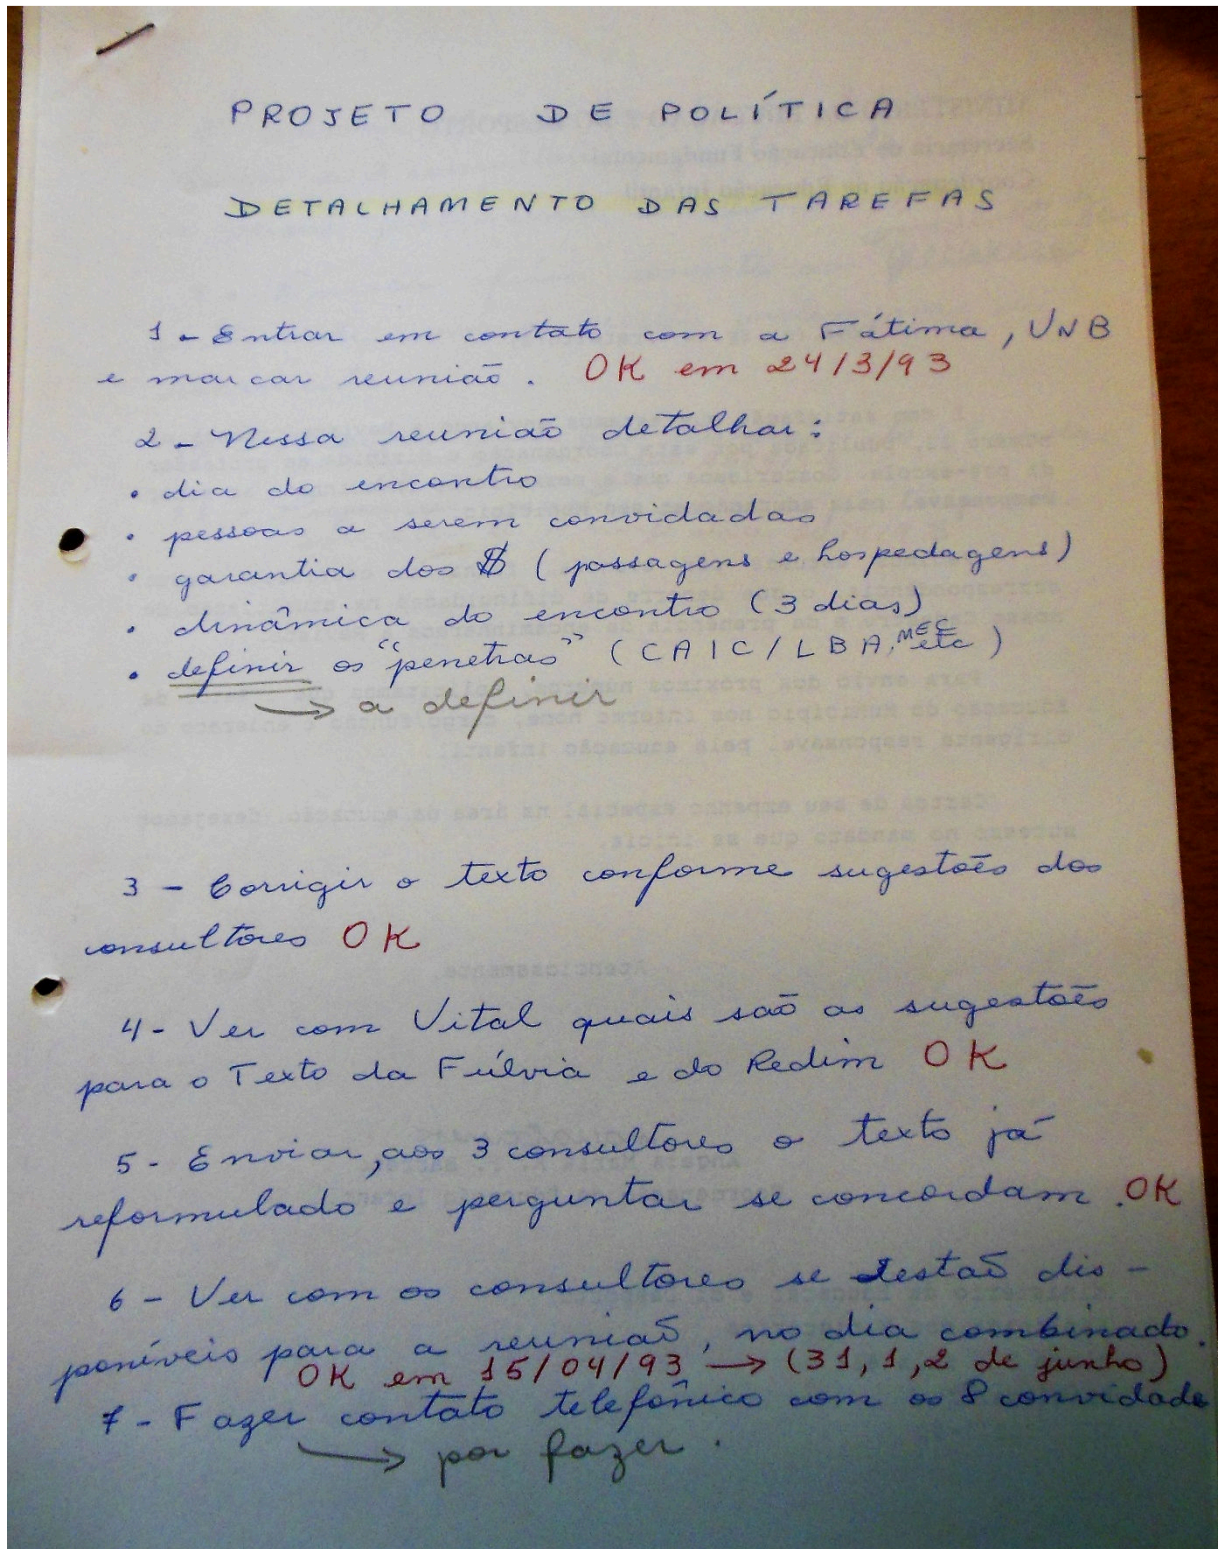 PROJETO DE POLÍTICA
DETALHAMENTO DAS TAREFAS
1 - Entrar em contato com a Fátima, UNB
e marcar reunião. OK em 24/3/93
2 - Nessa reunião detalhar:
• dia do encontro
• pessoas a serem convidadas
• garantia dos $ (passagens e hospedagens)
• dinâmica do encontro (3 dias)
• definir os "penetras" (CAIC/LBA, MEC etc)
→ a definir
3 - Corrigir o texto conforme sugestões dos
consultores OK
4 - Ver com Vital quais são as sugestões
para o Texto da Fúlvia e do Redim OK
5 - Enviar, aos 3 consultores o texto já
reformulado e perguntar se concordam. OK
6 - Ver com os consultores se estão dis-
poníveis para a reunião, no dia combinado.
OK em 15/04/93 → (31, 1, 2 de junho)
7 - Fazer contato telefônico com os 8 convidado
→ por fazer.